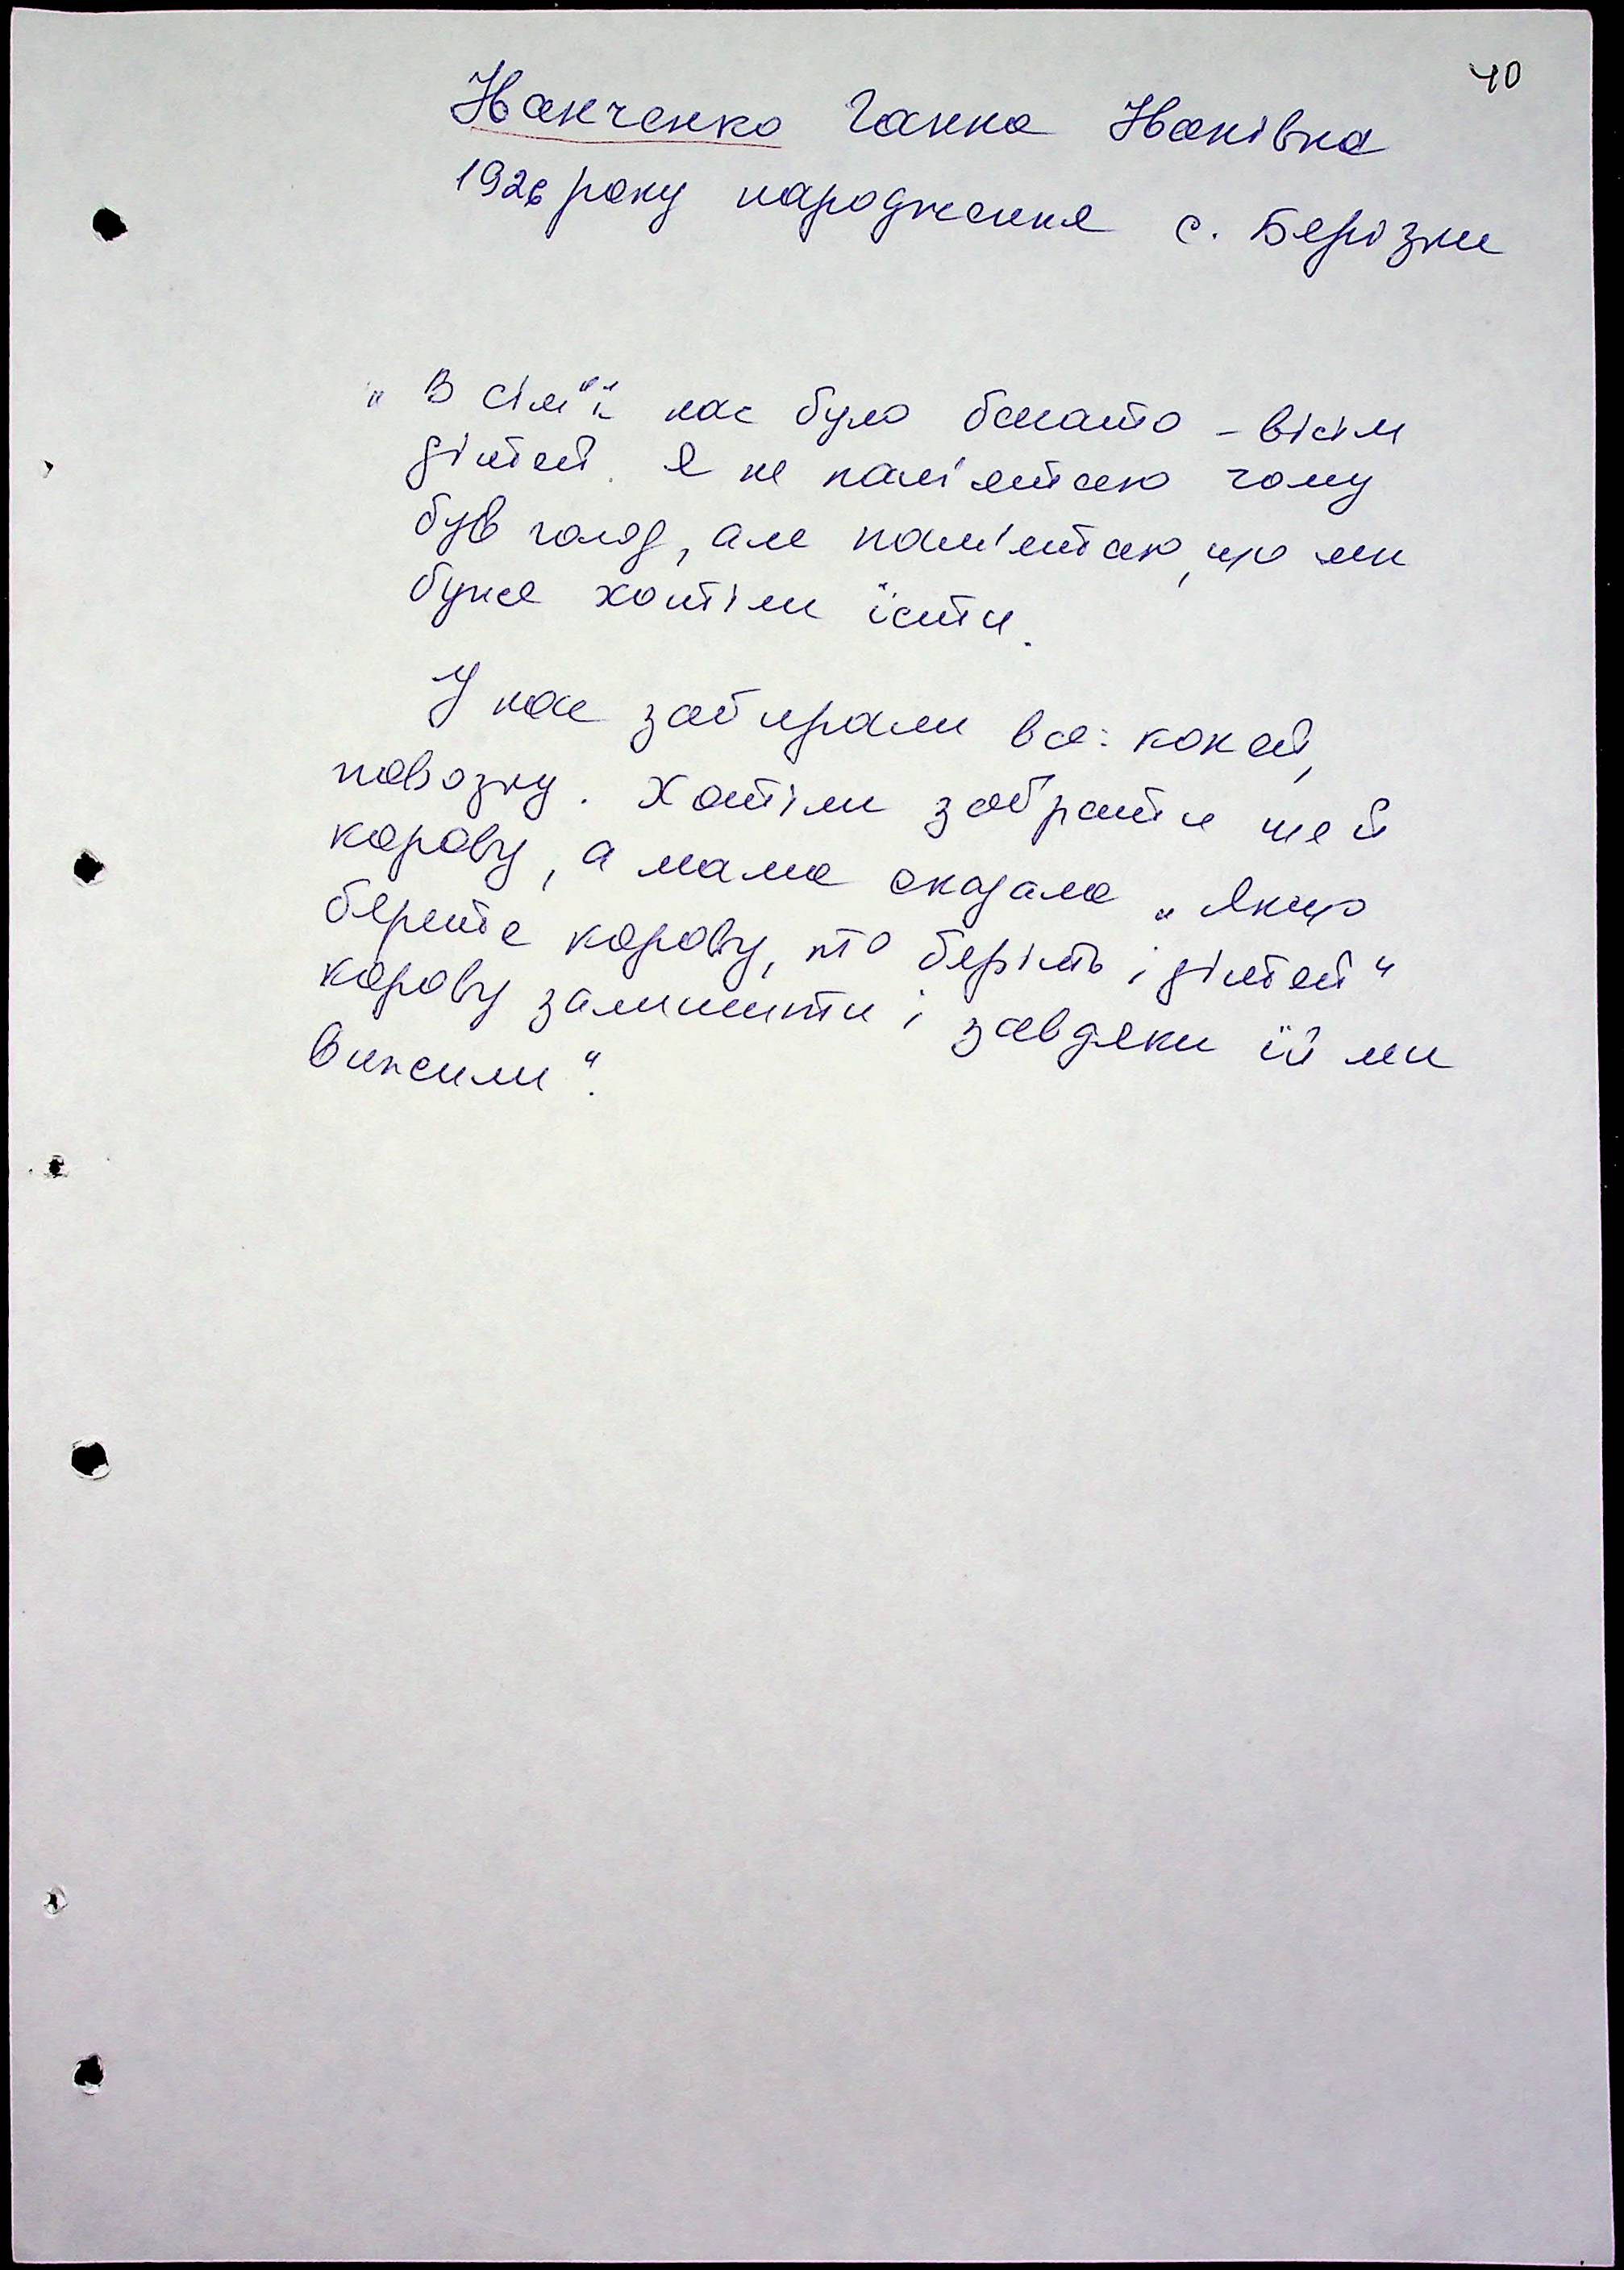 40
Іванченко Ганна Іванівна
1926 року народження с. Берізки
„В сім"ї нас було багато – вісім
дітей. Я не пам'ятаю чому
був голод, але пам'ятаю, що ми
дуже хотіли їсти.
У нас забирали все: коней,
повозку. Хотіли забрати ще й
корову, а мама сказала „Якщо
берете корову, то беріть і дітей"
корову залишити і завдяки їй ми
вижили".